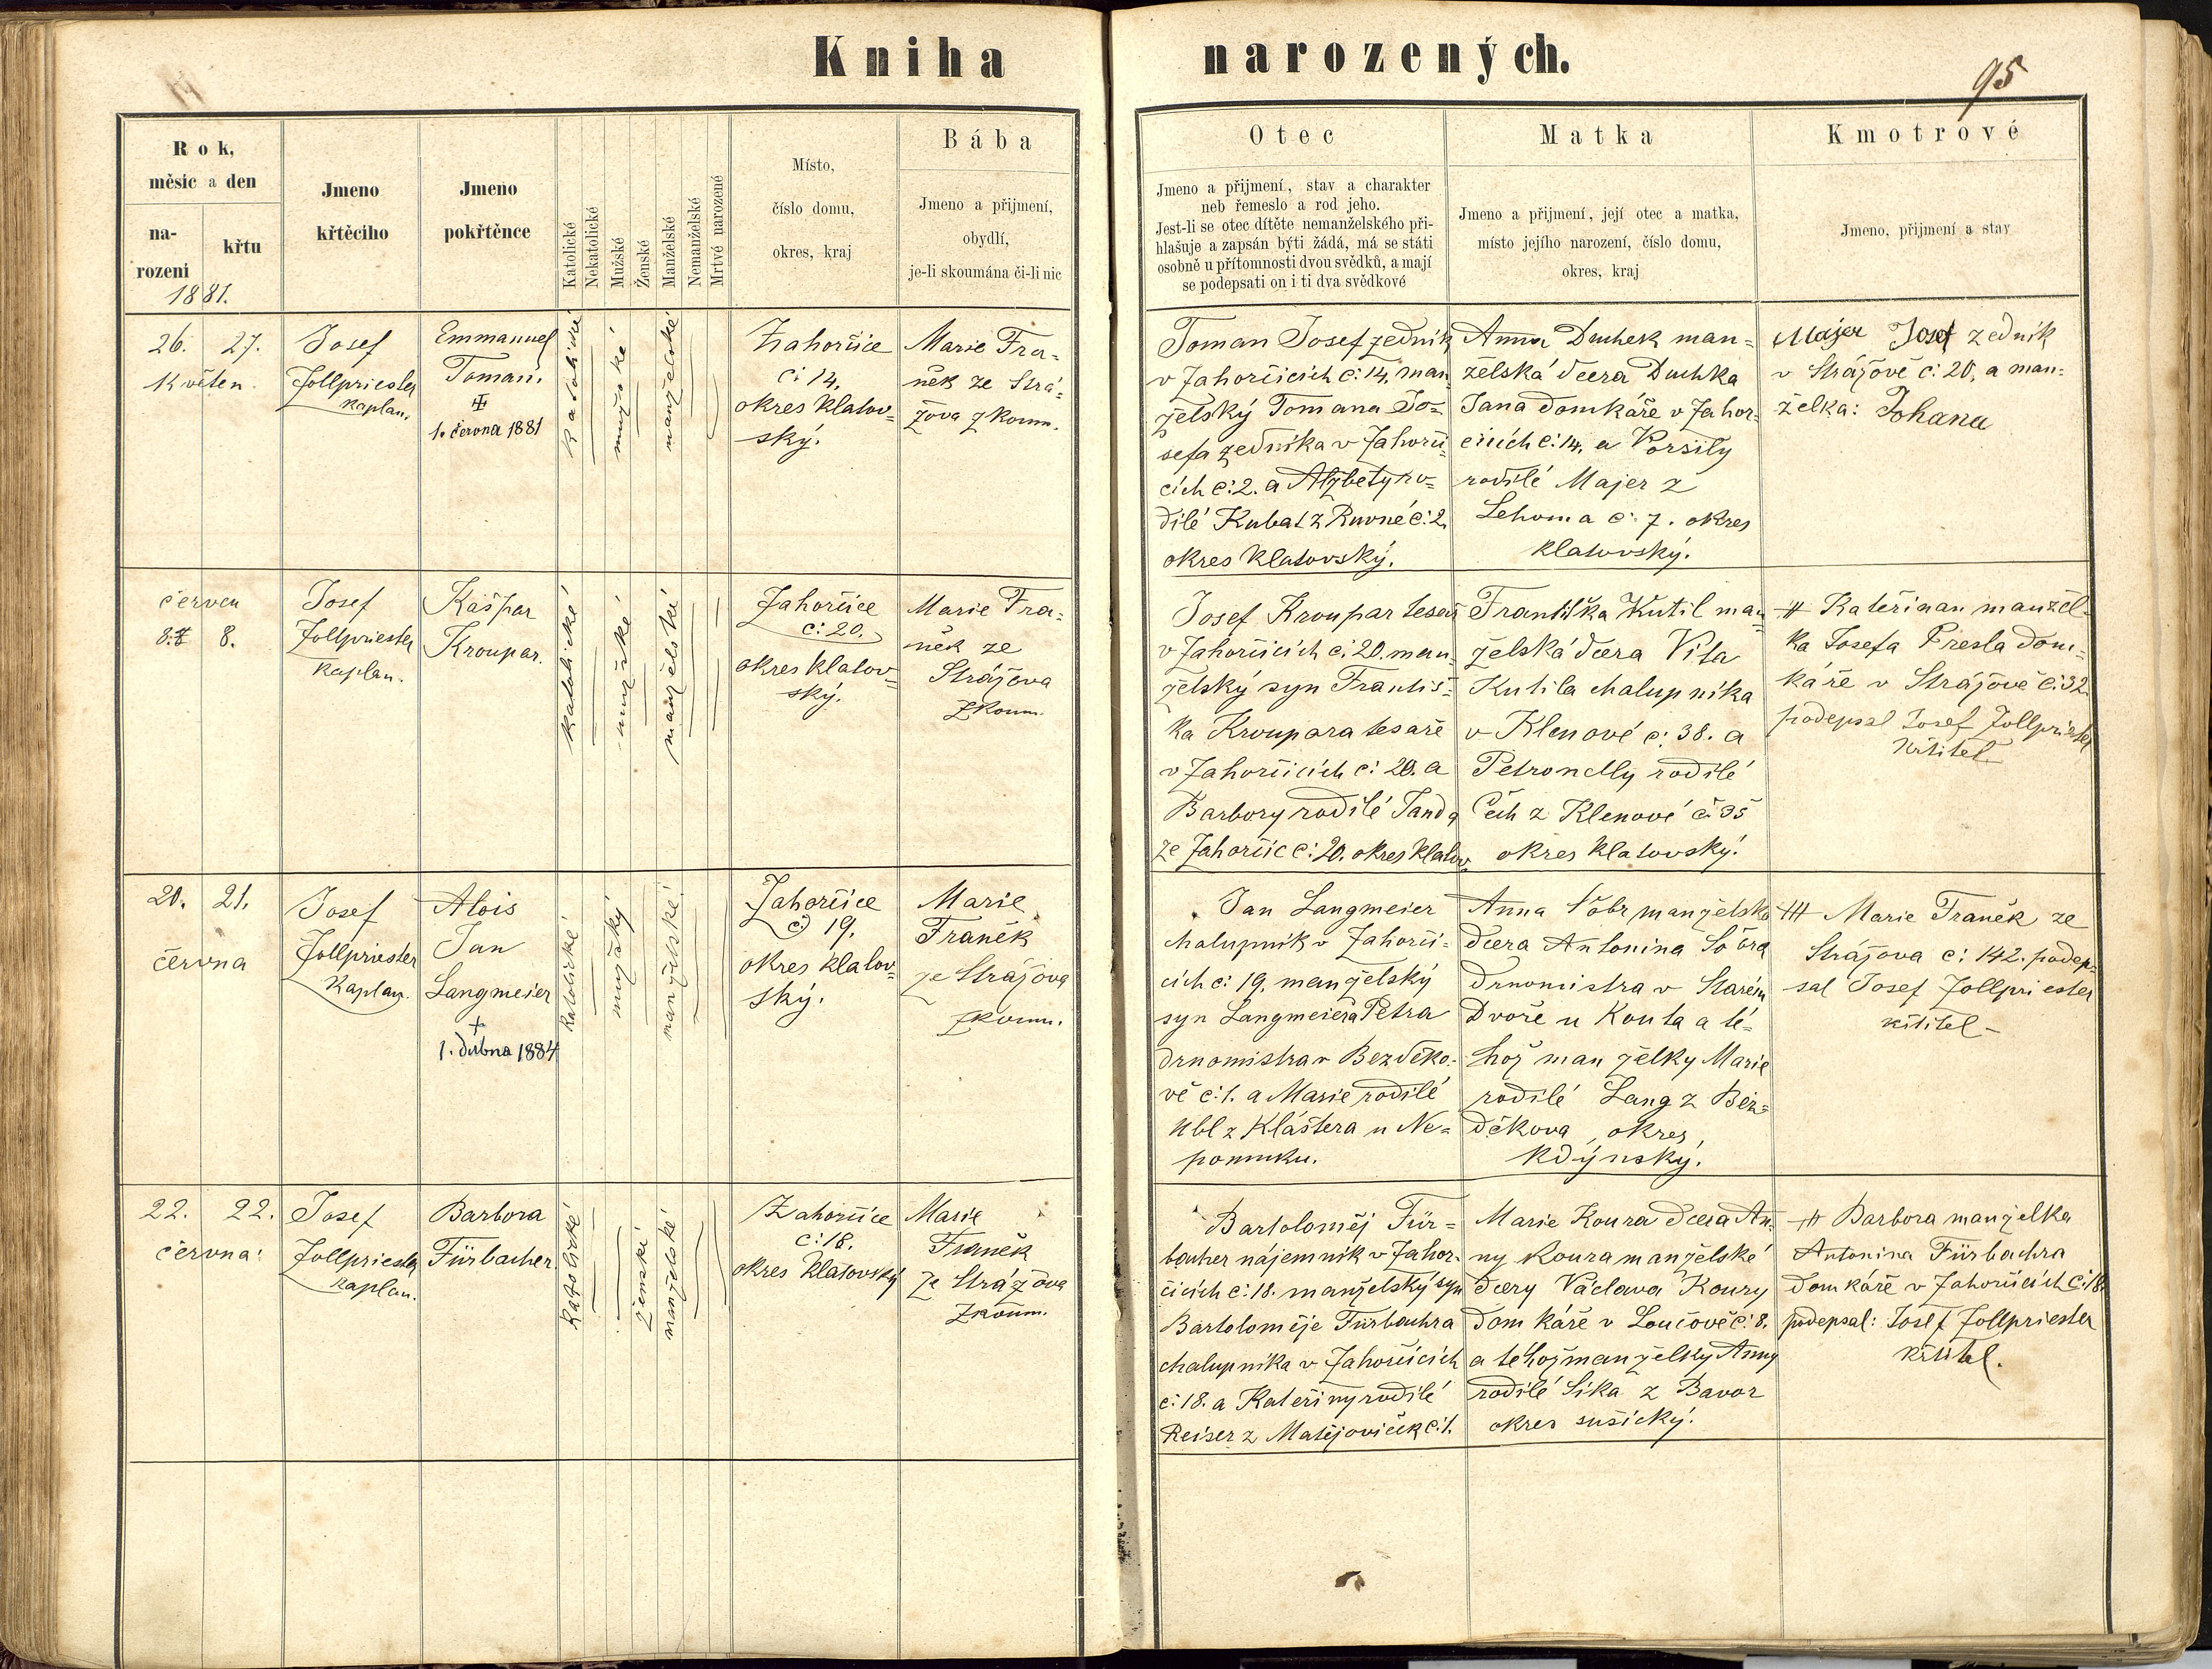 Kniha narozených.
95
Rok,
měsíc a den
na-
rozeni
křtu
1881.
Jmeno
křtěcího
Jmeno
pokřtěnce
Katolické
Nekatolické
Mužské
Ženské
Manželské
Nemanželské
Mrtvé narozené
Místo,
číslo domu,
okres, kraj
Bába
Jmeno a přijmení,
obydlí,
je-li skoumána či-li nic
Otec
Jmeno a přijmení, stav a charakter
neb řemeslo a rod jeho.
Jest-li se otec dítěte nemanželského při-
hlašuje a zapsán býti žádá, má se státi
osobně u přítomnosti dvou svědků, a mají
se podepsati on i ti dva svědkové
Matka
Jmeno a přijmení, její otec a matka,
místo jejího narození, číslo domu,
okres, kraj
Kmotrové
Jmeno, přijmení a stav
26. 27.
Květen.
Josef
Zollpriester
kaplan.
Emmanuel
Toman.
1. června 1881
katolické
mužské
manželské
Zahorčice
č: 14.
okres klatov-
ský.
Marie Fra-
něk ze Strá-
žova zkoum.
Toman Josef zedník
v Zahorčicích č: 14. man
želský Tomana Jo-
sefa zedníka v Zahorči-
cích č: 2. a Alžbety ro-
dilé Kubat z Rovné č: 2.
okres klatovský.
Anna Duchek man-
želská dcera Duchka
Jana domkáře v Zahor-
čicích č: 14. a Voršily
rodilé Majer z
Lehoma č: 7. okres
klatovský.
Majer Josef zedník
v Strážově č: 20, a man-
želka: Johana
červen
8. 8.
Josef
Zollpriester
kaplan.
Kašpar
Kroupar.
katolické
mužské
manželské
Zahorčice
č: 20.
okres klatov-
ský.
Marie Fra-
něk ze
Strážova
zkoum.
Josef Kroupar tesař
v Zahorčicích č: 20. man-
želský syn Františ-
ka Kroupara tesaře
v Zahorčicích č: 20. a
Barbory rodilé Janda
ze Zahorčic č: 20. okres klatov.
Františka Kutil man
želská dcera Víta
Kutila chalupníka
v Klenové č: 38. a
Petronelly rodilé
Čech z Klenové č 35
okres klatovský.
+++ Kateřinan manžel-
ka Josefa Presla dom-
káře v Strážově č: 32.
podepsal Josef Zollpriester
křtitel
20. 21.
června
Josef
Zollpriester
kaplan.
Alois
Jan
Langmeier
+
1. dubna 1884
katolické
mužský
manželské
Zahorčice
č 19.
okres klatov-
ský.
Marie
Franěk
ze Strážova
zkoum.
Jan Langmeier
chalupník v Zahorči-
cích č: 19. manželský
syn Langmeiera Petra
drnomistra v Bezděko-
vě č: 1. a Marie rodilé
z Kláštera u Ne-
pomuku.
Anna manželská
dcera Antonina
drnomistra v Starém
Dvoře u Kouta a té-
hož manželky Marie
rodilé Lang z Bez-
děkova, okres
kdýnský.
+++ Marie Franěk ze
Strážova č: 142. podep-
sal Josef Zollpriester
křtitel
22. 22.
června:
Josef
Zollpriester
kaplan.
Barbora
Fürbacher.
katolické
ženské
manželské
Zahorčice
č: 18.
okres klatovský
Marie
Franěk
ze Strážova
zkoum.
Bartoloměj Für-
bacher nájemník v Zahor-
čicích č: 18. manželský syn
Bartoloměje Fürbachra
chalupníka v Zahorčicích
č: 18. a Kateřiny rodilé
Reiser z Matějoviček č: 1.
Marie Koura dcera An-
ny Koura manželské
dcery Václava Koury
domkáře v Loučově č: 8.
a téhož manželky Anny
rodilé Sika z Bavor
okres sušický.
+++ Barbora manželka
Antonina Fürbachra
domkáře v Zahorčicích č: 18.
podepsal: Josef Zollpriester
křtitel.